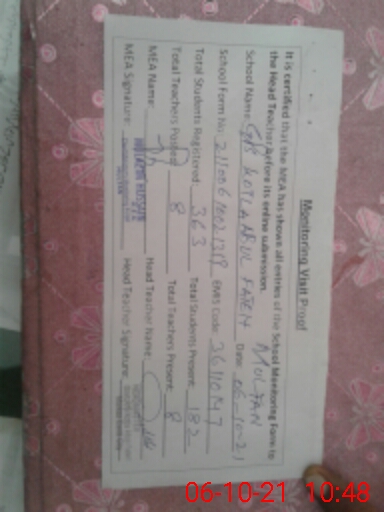 Monitoring Visit Proof
It is certified that the MEA has shown all entries of the School Monitoring Form to
the Head Teacher before its online submission.
School Name: GPS KOTLA ABUL FATEH MULTAN Date: 06-10-21
School Form No: EMIS Code: 36110147
Total Students Registered: 363 Total Students Present: 182
Total Teachers Posted: 8 Total Teachers Present: 8
MEA Name: Head Teacher Name:
MEA Signature: Head Teacher Signature:
06-10-21 10:48